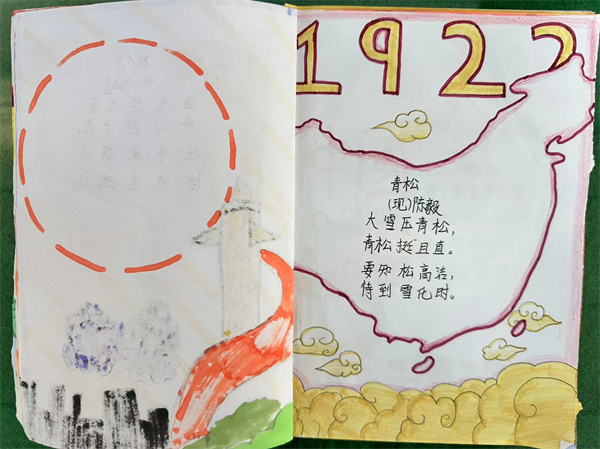 1922
青松
(现)陈毅
大雪压青松，
青松挺且直。
要知松高洁，
待到雪化时。